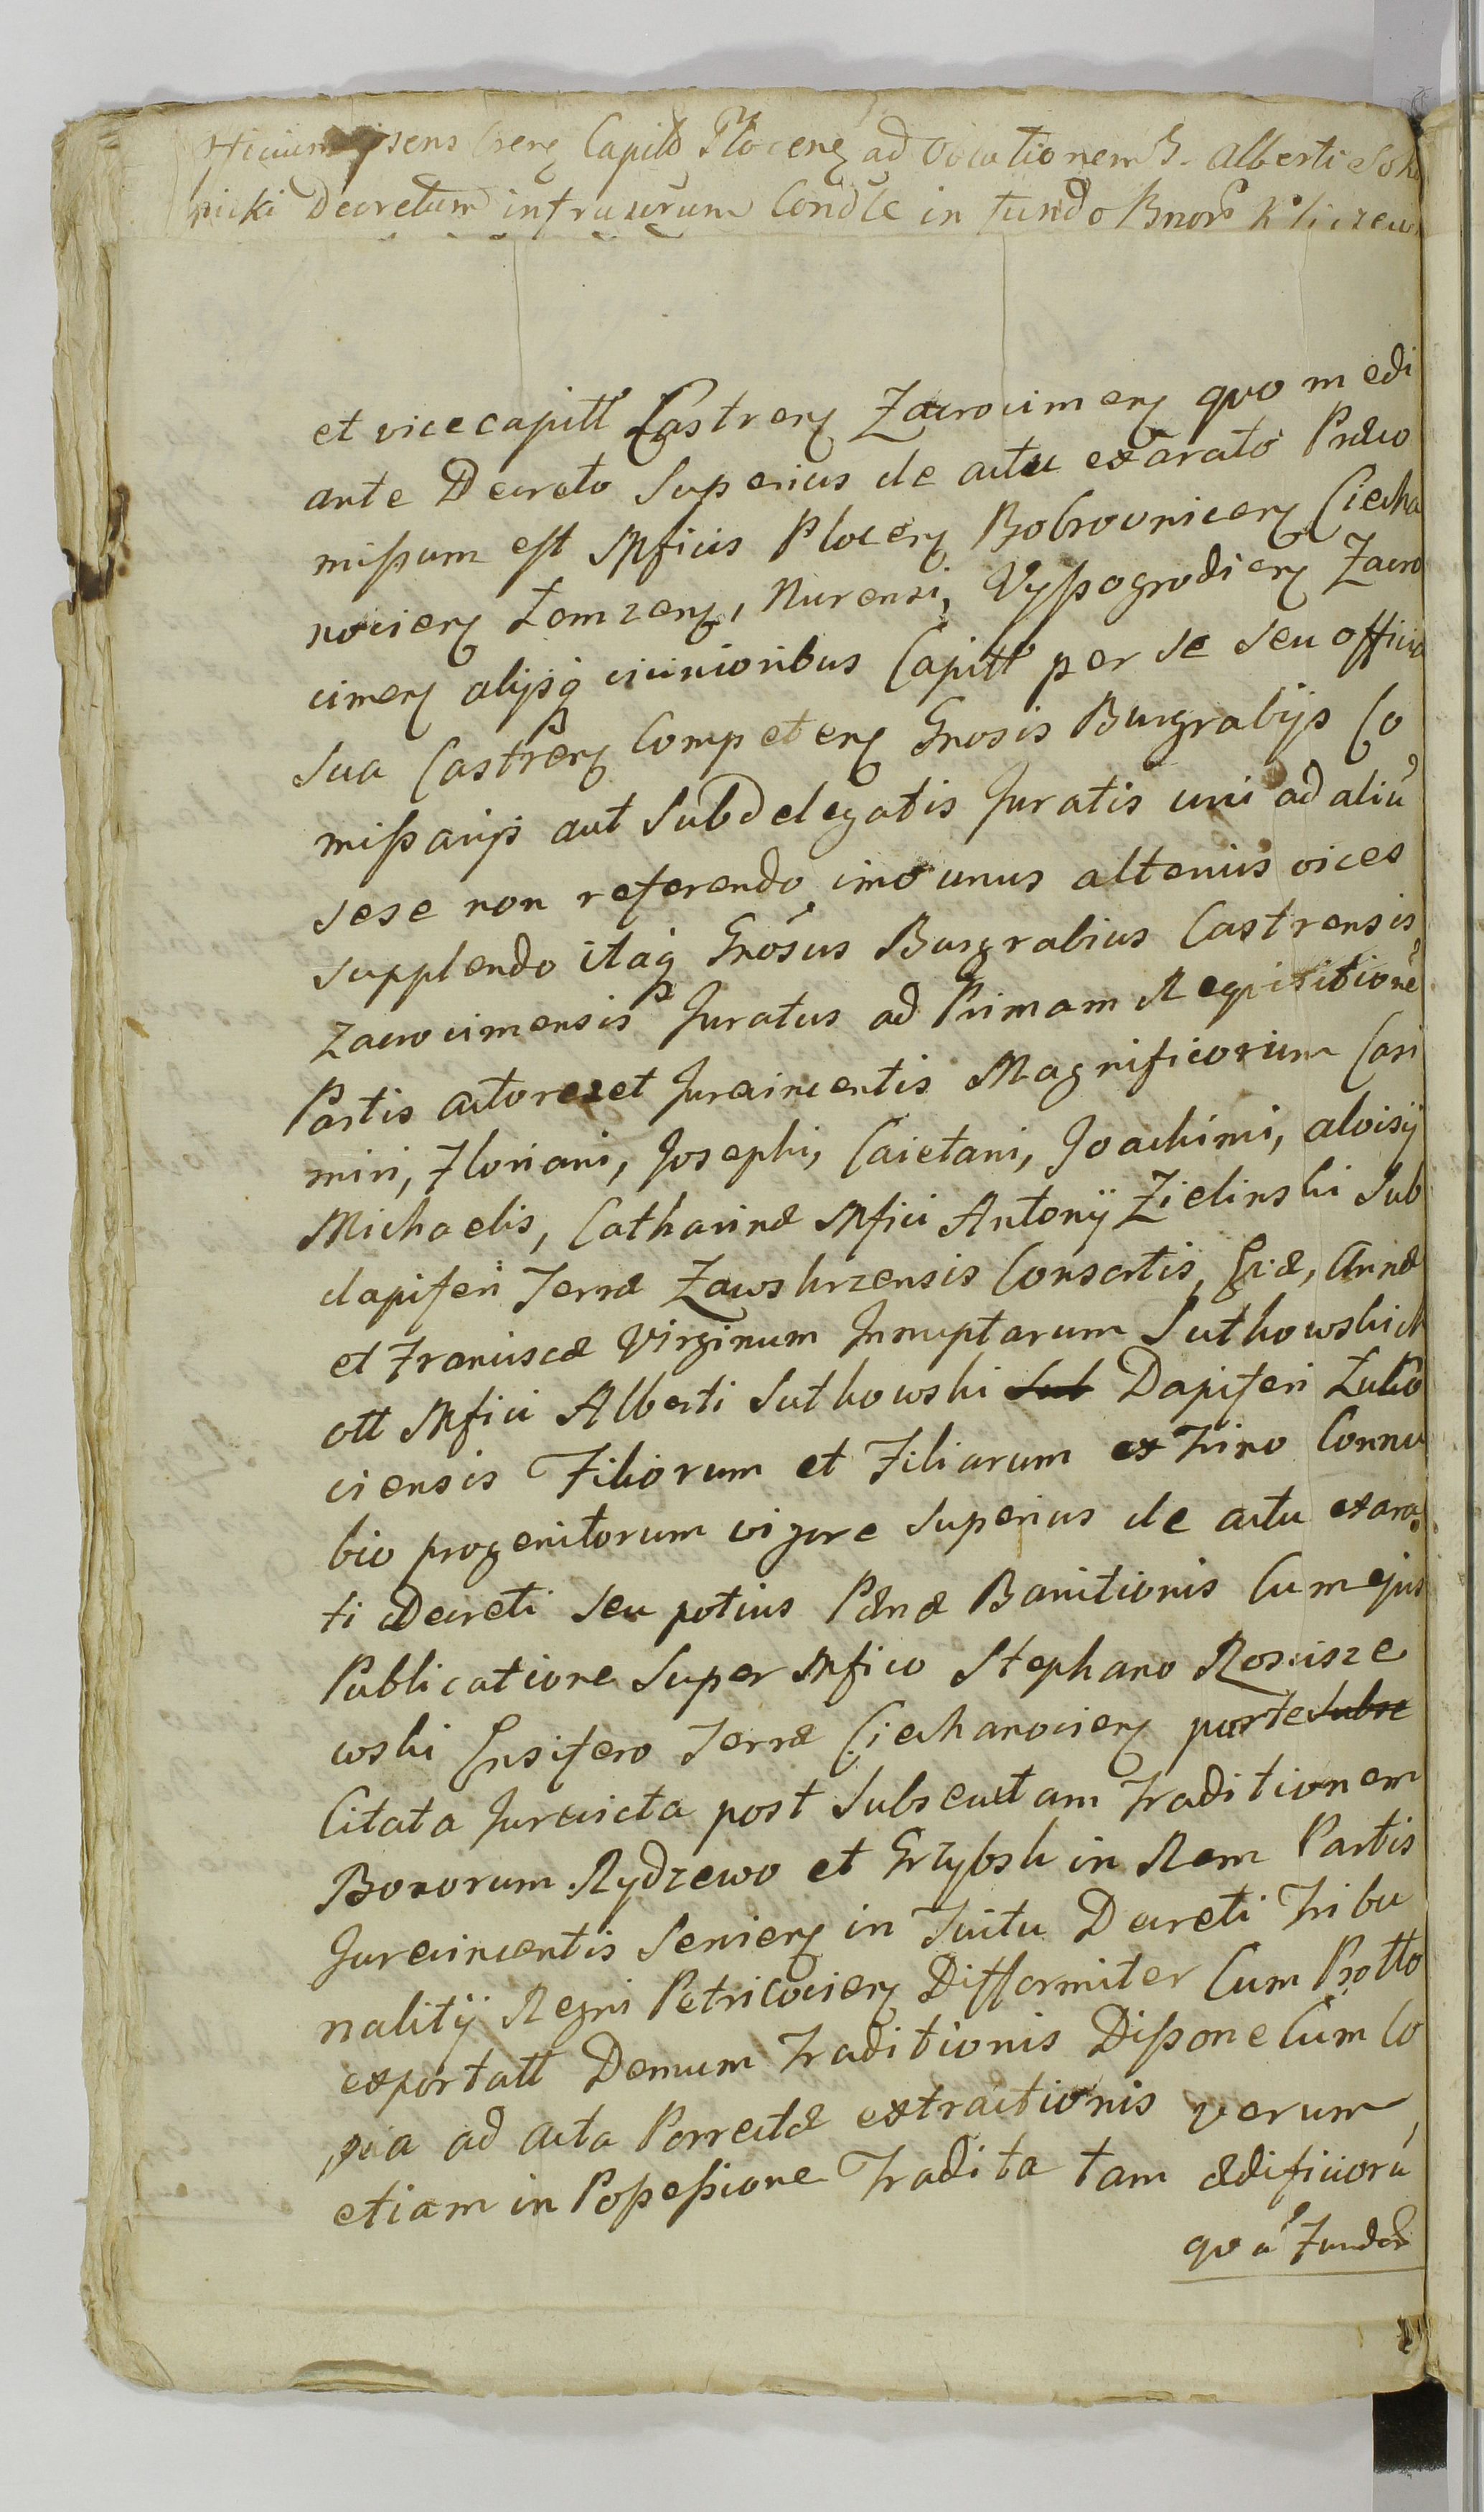 psens Crens Capitl Plocens ad Vocationem G. Alberti Soko
nicki Decretum infrascrum Condle in fundo Bnors
et vicecapitl Castrens Zacrocimens quo medi
ante Decreto Superius de actu exarato Præco
missum est Mficis Plocens Bobrovnicens Ciecha
nociens Łomzens, Nurensi, Vyssogrodiens Zacro
cimens alijsq vicinioribus Capitl per se seu officia
Sua Castrens Competens Grosis Burgrabijs Co
missarijs aut Subdelegatis Juratis uni ad aliũ
sese non referendo imo unus alterius vices
supplendo itaq Grosus Burgrabius Castrensis
Zacrocimensis Juratus ad Primam Requisitionẽ
Partis actorez et Jurevincentis Magnificorum Casi
miri, Floriani, Josephi, Caietani, Joachimi, aloisij
Michaelis, Catharinæ Mfici Antonij Zielinski Sub
dapiferi Terræ Zawskrzensis Consortis, annæ
et Franciscæ Virginum Innuptarum Sutkowskich
ott Mfici Alberti Sutkowski Sub Dapiferi Luko
viensis Filiorum et Filiarum ex Trino Connu
bio progenitorum vigore superius de actu exara
ti Decreti seu potius Pænæ Banitionis Cum ejus
Publicatione Super Mfico Stephano Roscisze
wski Ensifero Terræ Ciechanociens parte Subse
Citata Jurevicta post Subsecutam Traditionem
Bonorum Rydzewo et Grzybsk in Rem Partis
Jurevincentis Serviens in Tuitu Decreti Tribu
nalitij Regni Petricoviens Difformiter Cum Protto
exportatt Demum Traditionis Dispone Cum Co
pia ad acta Porrectæ extractionis verum
etiam in Possessione Tradita tam ædificiorũ
quã Fundor